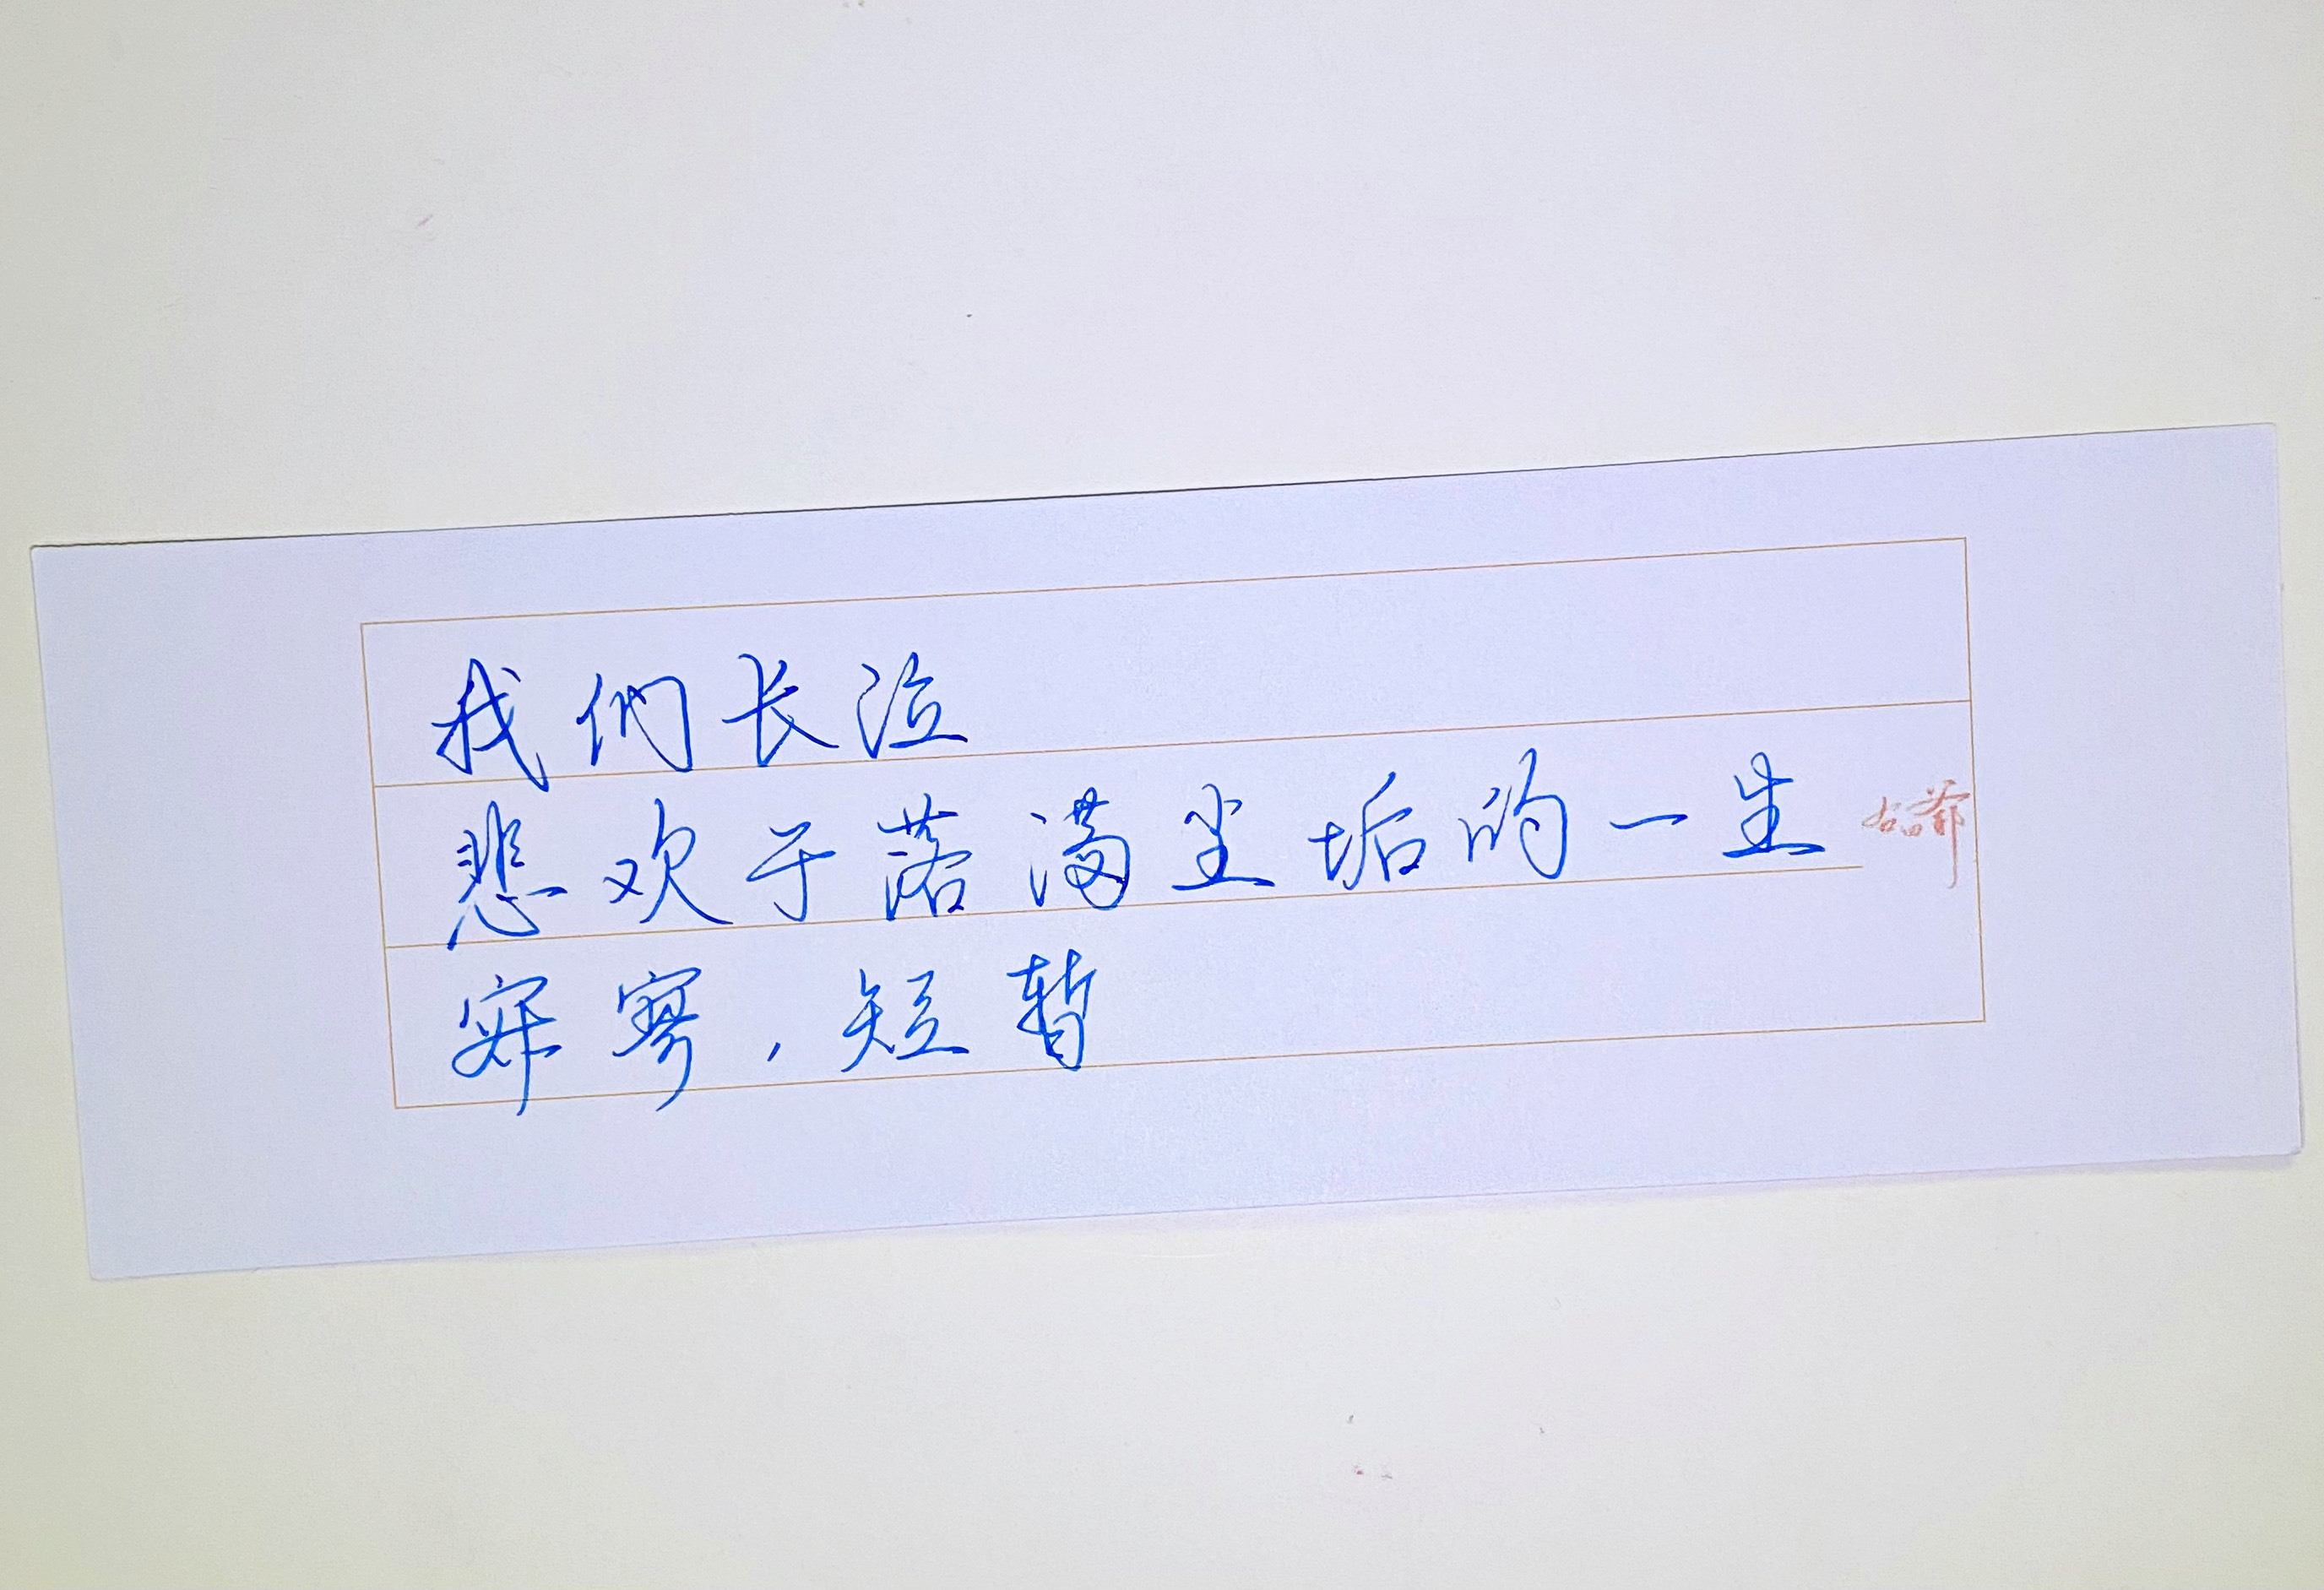 我们长泣
悲欢于落满尘垢的一生
寂寥，短暂